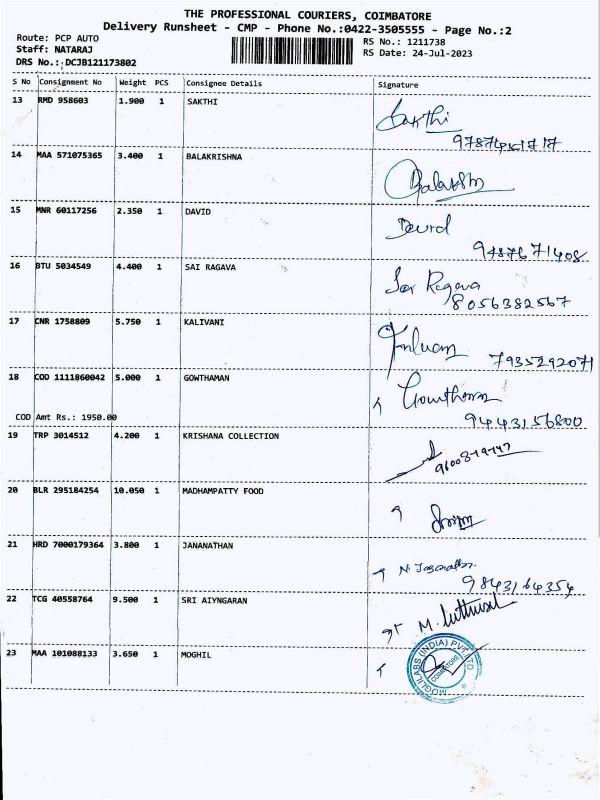 THE PROFESSIONAL COURIERS, COIMBATORE
Delivery Runsheet - CMP - Phone No.:0422-3505555 - Page No.:2
Route: PCP AUTO
Staff: NATARAJ
DRS No.: DCJB121173802
RS No.: 1211738
RS Date: 24-Jul-2023
S No Consignment No Weight PCS Consignee Details Signature
13 RMD 958603 1.900 1 SAKTHI
Sakthi
14 MAA 571075365 3.400 1 BALAKRISHNA
15 MNR 60117256 2.350 1 DAVID
David
9487671408
16 BTU 5034549 4.400 1 SAI RAGAVA
Sai Ragava
8056382567
17 CNR 1758809 5.750 1 KALIVANI
7935292071
18 COD 1111860042 5.000 1 GOWTHAMAN
Gowthaman
9443156800
COD Amt Rs.: 1950.00
19 TRP 3014512 4.200 1 KRISHANA COLLECTION
20 BLR 295184254 10.050 1 MADHAMPATTY FOOD
21 HRD 7000179364 3.800 1 JANANATHAN
9843164354
22 TCG 40558764 9.500 1 SRI AIYNGARAN
23 MAA 101088133 3.650 1 MOGHIL
MOGLILABS (INDIA) PVT LTD
COIMBATORE